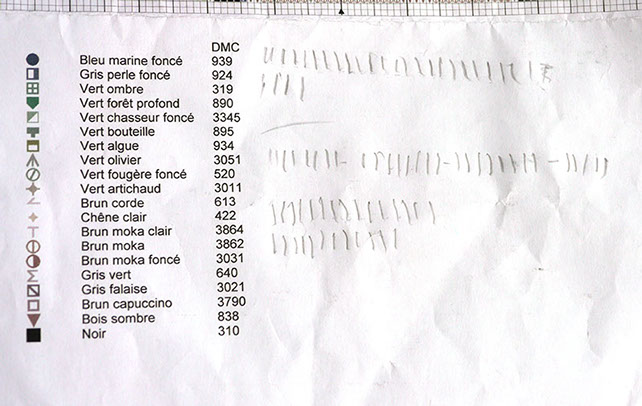 DMC
Bleu marine foncé 939
Gris perle foncé 924
Vert ombre 319
Vert forêt profond 890
Vert chasseur foncé 3345
Vert bouteille 895
Vert algue 934
Vert olivier 3051
Vert fougère foncé 520
Vert artichaud 3011
Brun corde 613
Chêne clair 422
Brun moka clair 3864
Brun moka 3862
Brun moka foncé 3031
Gris vert 640
Gris falaise 3021
Brun capuccino 3790
Bois sombre 838
Noir 310